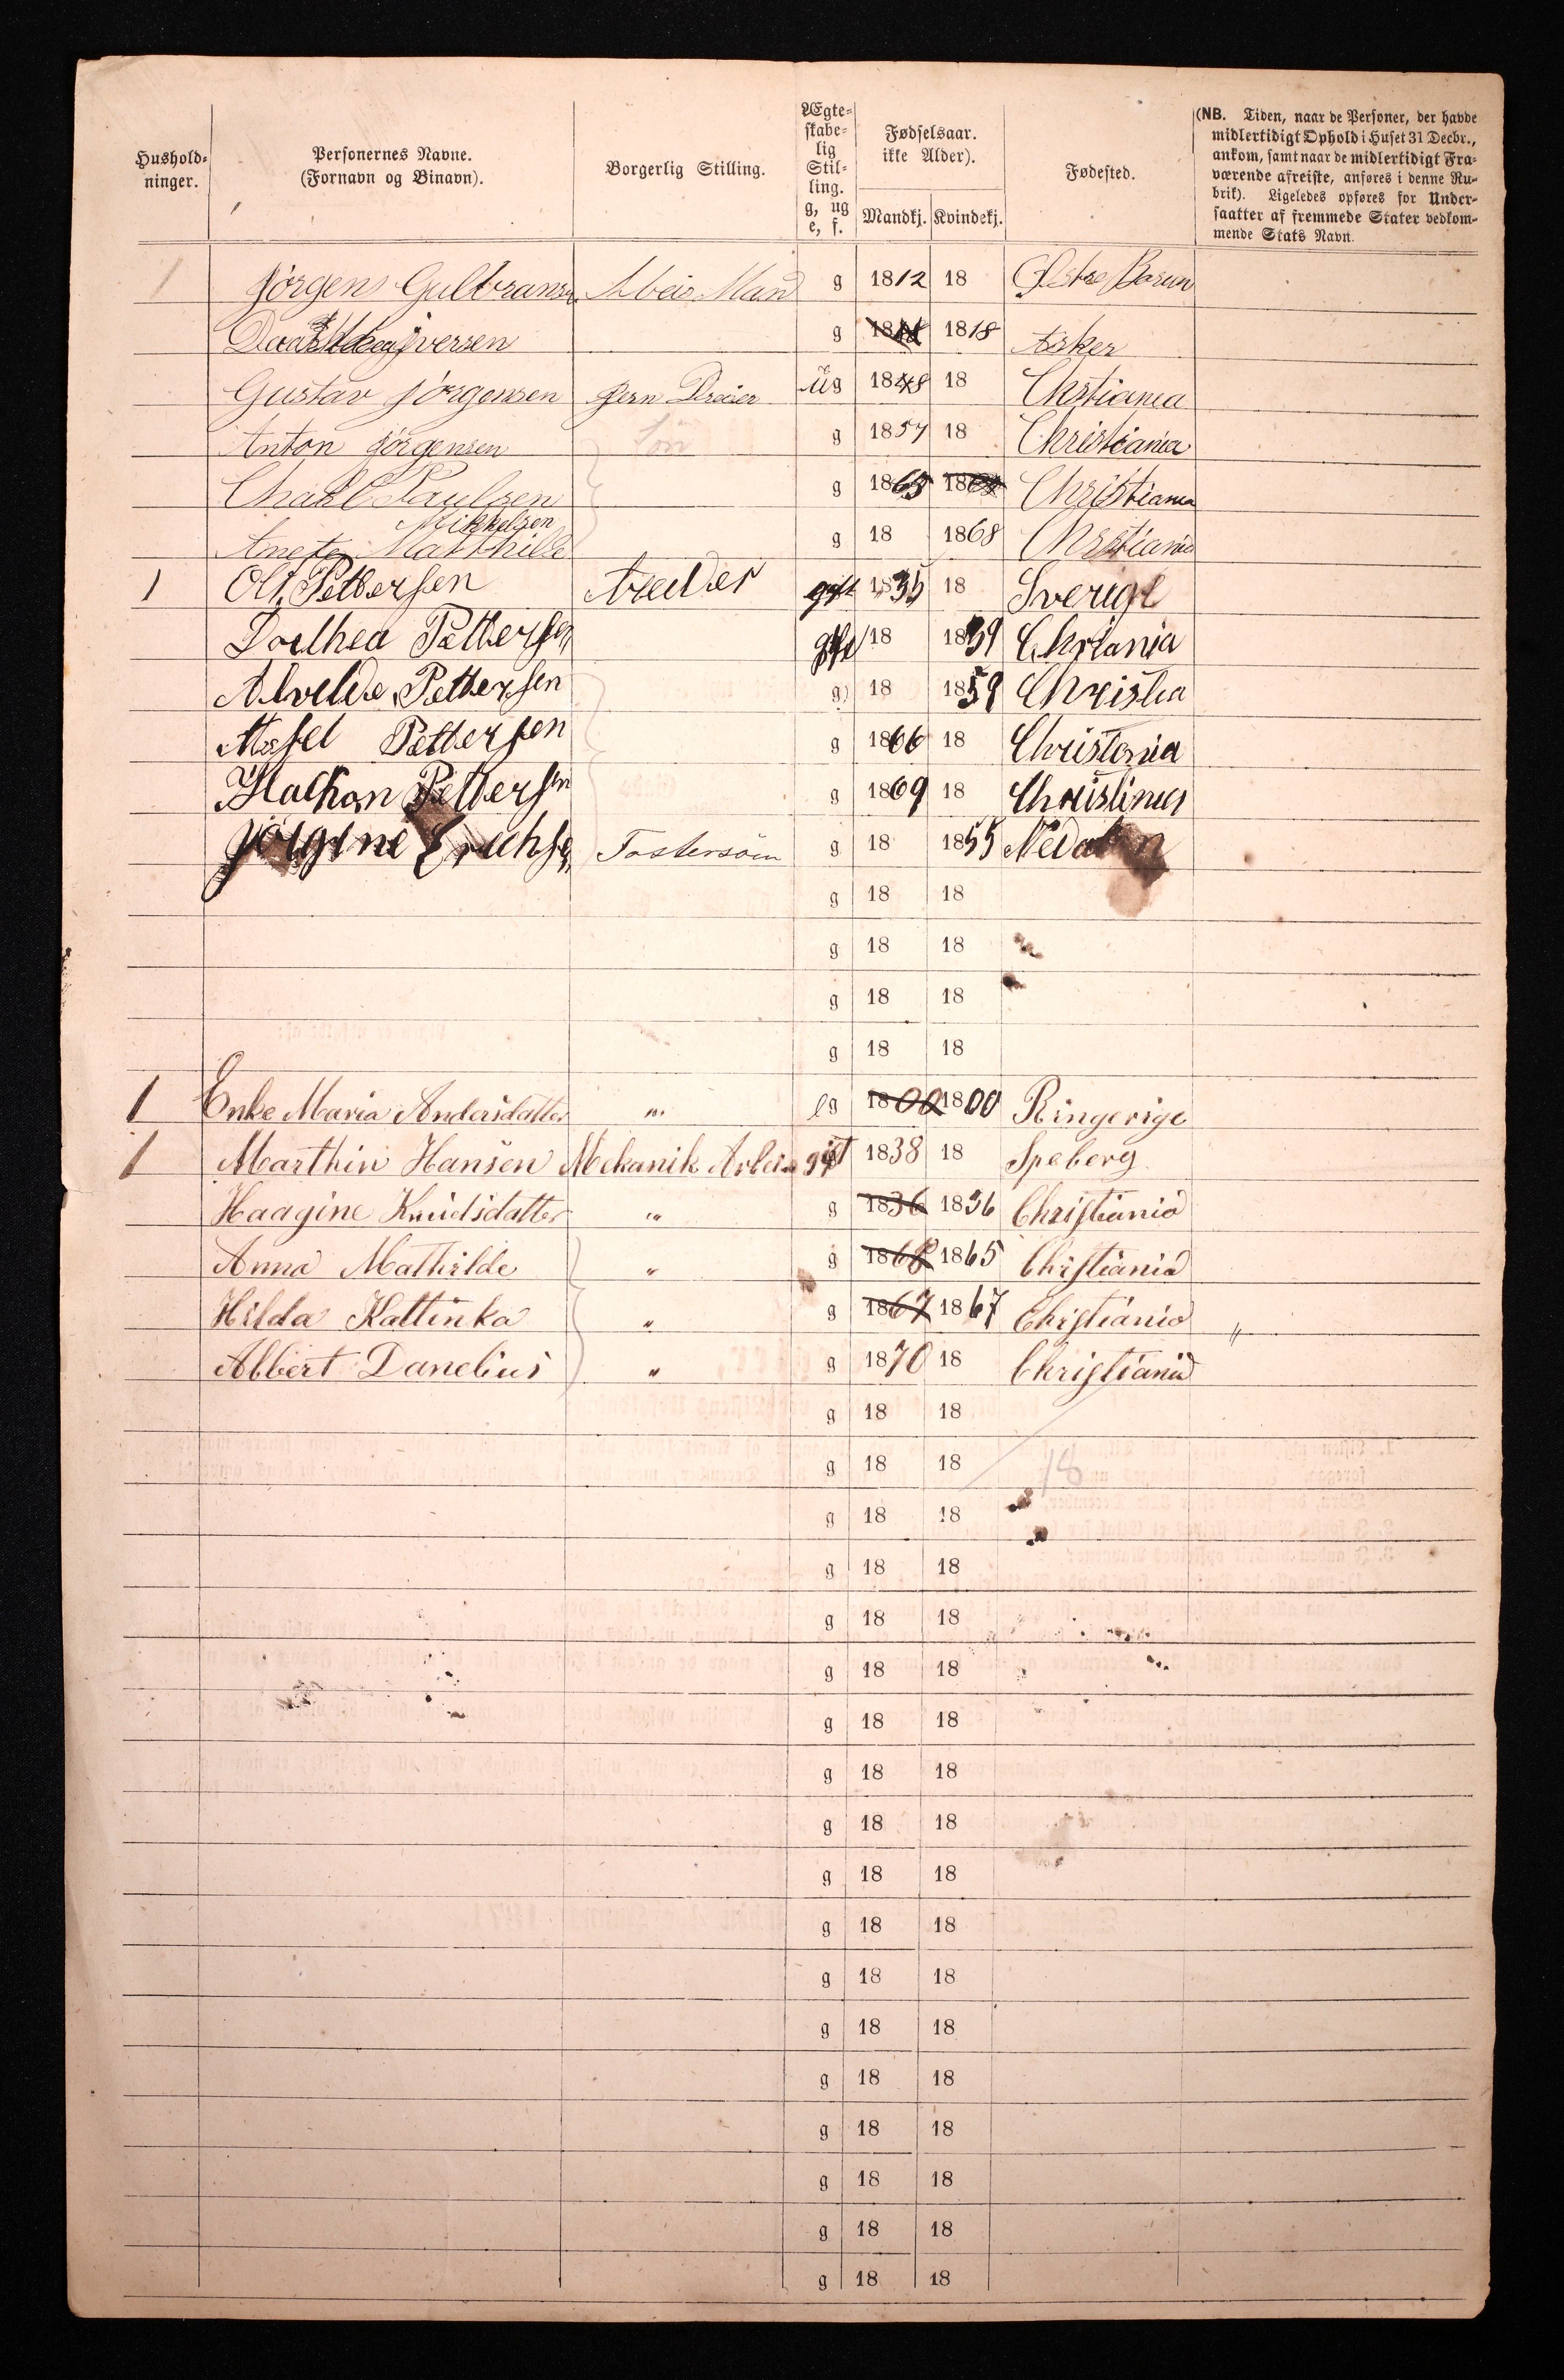 Hushold-
ninger.
Personernes Navne.
(Fornavn og Binavn).
Borgerlig Stilling.
Ægte-
skabe-
lig
Stil-
ling.
g, ug
e, f.
Fødselsaar.
ikke Alder).
Mandkj. Kvindekj.
Fødested.
(NB. Tiden, naar de Personer, der havde
midlertidigt Ophold i Huset 31 Decbr.,
ankom, samt naar de midlertidigt Fra-
værende afreiste, anføres i denne Ru-
brik). Ligeledes opføres for Under-
saatter af fremmede Stater vedkom-
mende Stats Navn.
1 Jörgen Gulbransen Abeis Mand g 1812 18 Østre Barum
Iversen g 18 1818 Asker
Gustav Jörgensen Jern Dreier ug 1848 18 Chstiania
Anton Jörgensen Sön g 1857 18 Christiania
Charl Paulsen g 1865 18 Christiania
Mikkelsen
Anete Matthilde g 18 1868 Chrstiania
1 Ole Pettersen Areider gift 1835 18 Sverige
Dorthea Pettersen gift 18 1839 Chrtania
Alvilde Pettersen g 18 1859 Christia
Aksel Pettersen g 1866 18 Christania
Hachon Pettersen g 1869 18 Christinia
Jörgine Erichsen Fostersön g 18 1855
g 18 18
g 18 18
g 18 18
g 18 18
1 Enke Maria Andersdatter " eg 1800 1800 Ringerige
1 Marthin Hansen Mekanik Arbeier gift 1838 18 Speberg
Haagine Knudsdatter " g 1836 1836 Christiania
Anna Mathilde " g 1868 1865 Christiania
Hilda Kattinka " g 1867 1867 Christiania "
Albert Danelius " g 1870 18 Christiania
g 18 18
g 18 18 18
g 18 18
g 18 18
g 18 18
g 18 18
g 18 18
g 18 18
g 18 18
g 18 18
g 18 18
g 18 18
g 18 18
g 18 18
g 18 18
g 18 18
g 18 18
g 18 18